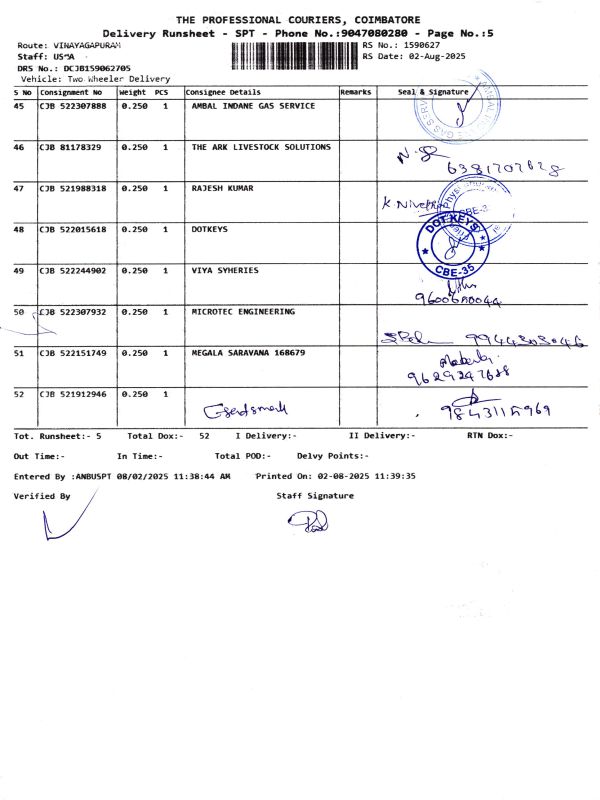 THE PROFESSIONAL COURIERS, COIMBATORE
Delivery Runsheet - SPT - Phone No.:9047080280 - Page No.:5
Route: VINAYAGAPURAM RS No.: 1590627
Staff: USMA RS Date: 02-Aug-2025
DRS No.: DCJB159062705
Vehicle: Two Wheeler Delivery
S No Consignment No Weight PCS Consignee Details Remarks Seal & Signature
45 CJB 522307888 0.250 1 AMBAL INDANE GAS SERVICE
46 CJB 81178329 0.250 1 THE ARK LIVESTOCK SOLUTIONS
6381707628
47 CJB 521988318 0.250 1 RAJESH KUMAR
CBE-3
48 CJB 522015618 0.250 1 DOTKEYS
DOT KEYS
CBE-35
49 CJB 522244902 0.250 1 VIYA SYHERIES
50 CJB 522307932 0.250 1 MICROTEC ENGINEERING
51 CJB 522151749 0.250 1 MEGALA SARAVANA 168679
9629247688
52 CJB 521912946 0.250 1
Tot. Runsheet:- 5 Total Dox:- 52 I Delivery:- II Delivery:- RTN Dox:-
Out Time:- In Time:- Total POD:- Delvy Points:-
Entered By :ANBUSPT 08/02/2025 11:38:44 AM Printed On: 02-08-2025 11:39:35
Verified By Staff Signature